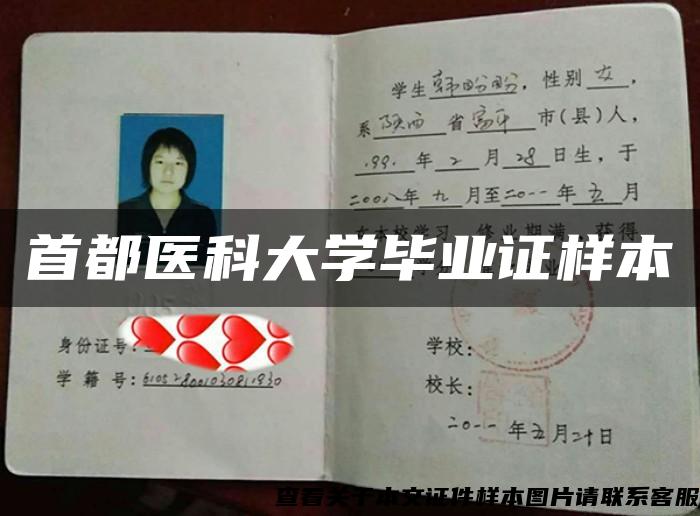 学生韩盼盼，性别女，
系陕西省富平市(县)人，
.991年2月28日生，于
二00八年九月至二0一一年五月
在本校学习，修业期满，获得
首都医科大学毕业证样本
业
身份证号:
学籍号:610528001030811930
学校:
校长:
二0一一年五月二十日
查看关于本文证件样本图片请联系客服